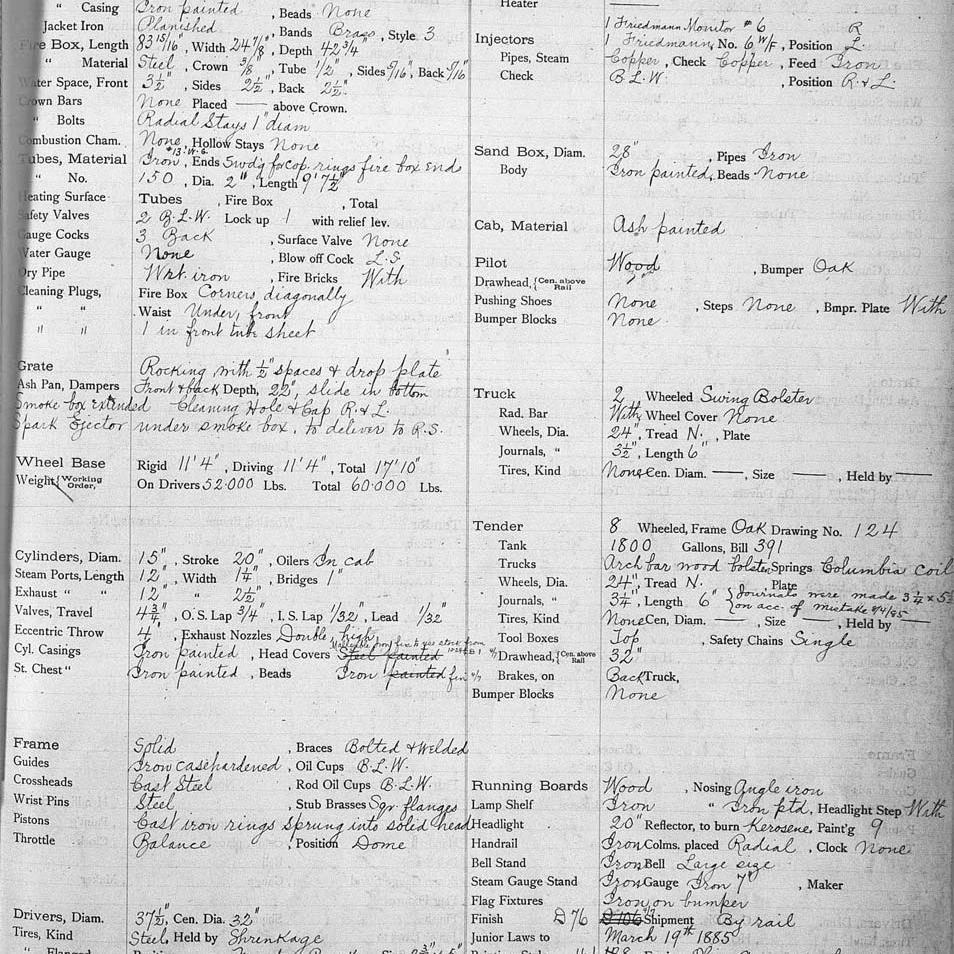 " Casing Iron painted , Beads None
Jacket Iron Planished , Bands Brass , Style 3
Fire Box, Length 83 15/16" , Width 24 7/8" , Depth 42 3/4"
" Material Steel , Crown 3/8" , Tube 1/2" , Sides 5/16" , Back 5/16"
Water Space, Front 3 1/2" , Sides 2 1/2" , Back 2 1/2"
Crown Bars None Placed — above Crown.
" Bolts Radial Stays 1" diam
Combustion Cham. None , Hollow Stays None
Tubes, Material Iron #13 W.G. , Ends Swd'g for cop. rings fire box end
" No. 150 , Dia. 2" , Length 9' 7 1/2"
Heating Surface Tubes , Fire Box , Total
Safety Valves 2 B.L.W. Lock up 1 with relief lev.
Gauge Cocks 3 Back , Surface Valve None
Water Gauge None , Blow off Cock L.S.
Dry Pipe Wrt. iron , Fire Bricks With
Cleaning Plugs, Fire Box Corners diagonally
" " Waist Under, front
" " 1 in front tube sheet
Grate Rocking with 1/2" spaces & drop plate
Ash Pan, Dampers Front & back Depth, 22", slide in bottom
Smoke box extended Cleaning Hole & Cap R. & L.
Spark Ejector under smoke box, to deliver to R.S.
Wheel Base Rigid 11' 4" , Driving 11' 4" , Total 17' 10"
Weight { Working Order, On Drivers 52.000 Lbs. Total 60.000 Lbs.
Cylinders, Diam. 15" , Stroke 20" , Oilers In cab
Steam Ports, Length 12" , Width 1 1/4" , Bridges 1"
Exhaust " " 12" " 2 1/2"
Valves, Travel 4 3/4" , O. S. Lap 3/4" , I. S. Lap 1/32" , Lead 1/32"
Eccentric Throw 4" , Exhaust Nozzles Double high
Cyl. Casings Iron painted , Head Covers Steel painted
St. Chest " Iron painted , Beads Iron painted fin
Frame Solid , Braces Bolted & Welded
Guides Iron casehardened , Oil Cups B.L.W.
Crossheads Cast Steel , Rod Oil Cups B.L.W.
Wrist Pins Steel , Stub Brasses Sqr flanges
Pistons Cast iron rings sprung into solid head
Throttle Balance , Position Dome
Drivers, Diam. 37 1/2" , Cen. Dia. 32"
Tires, Kind Steel , Held by Shrinkage
" Flanged
Heater
1 Friedmann Monitor #6 R
Injectors 1 Friedmann, No. 6 , Position L.
Pipes, Steam Copper , Check Copper , Feed Iron
Check B.L.W. , Position R. & L.
Sand Box, Diam. 28" , Pipes Iron
Body Iron painted , Beads None
Cab, Material Ash painted
Pilot Wood , Bumper Oak
Drawhead, { Cen. above Rail "
Pushing Shoes None , Steps None , Bmpr. Plate With
Bumper Blocks None
Truck 2 Wheeled Swing Bolster
Rad. Bar With , Wheel Cover None
Wheels, Dia. 24" , Tread N. , Plate
Journals, " 3 1/2" , Length 6"
Tires, Kind None Cen. Diam. — , Size — , Held by —
Tender 8 Wheeled, Frame Oak Drawing No. 124
Tank 1800 Gallons, Bill 391
Trucks Arch bar wood bolster Springs Columbia coil
Wheels, Dia. 24" , Tread N. Plate
Journals, " 3 1/4" , Length 6" { Journals were made 3 1/4 x 5 1/2
on acc. of mistake 4/4/85
Tires, Kind None Cen, Diam. — , Size — , Held by —
Tool Boxes Top , Safety Chains Single
Drawhead, { Cen. above Rail 32"
Brakes, on Back Truck,
Bumper Blocks None
Running Boards Wood , Nosing Angle iron
Lamp Shelf Iron " Iron ptd , Headlight Step With
Headlight 20" Reflector, to burn Kerosene , Paint'g 9
Handrail Iron Colms. placed Radial , Clock None
Bell Stand Iron Bell Large size
Steam Gauge Stand Iron Gauge Iron 7" , Maker
Flag Fixtures Iron, on bumper
Finish D 76 D 106 Shipment By rail
Junior Laws to March 19th 1885